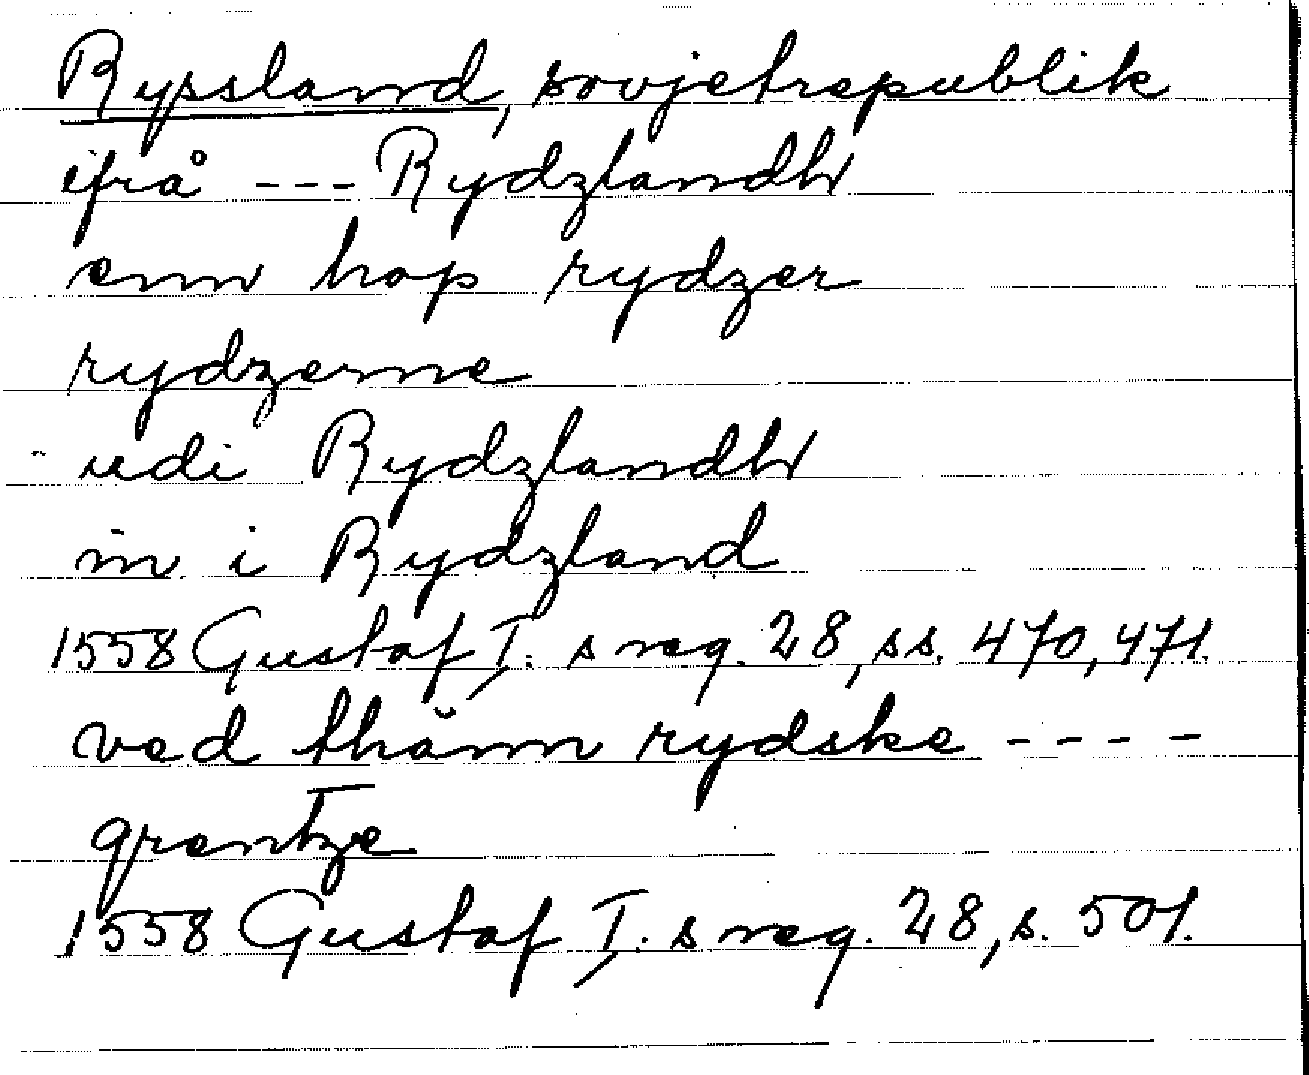 Ryssland, sovjetrepublik
ifrå --- Rydzlandh
enn hop rydzer
rydzerne
udi Rydzlandh
in i Rydzland
1558 Gustaf I:s reg. 28, ss. 470, 471.
ved thänn rydske ----
grentze
1558 Gustaf I:s reg. 28, s. 501.